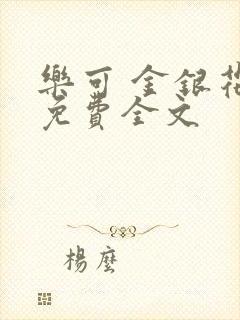 樂可 金銀花
免費全文
楊麽